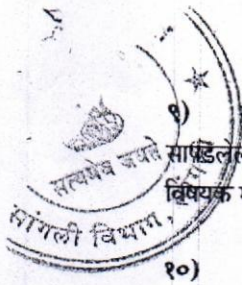 ९)
सत्यमेव जयते
सापडलेल
विषयक
सांगली विभाग,
१०)